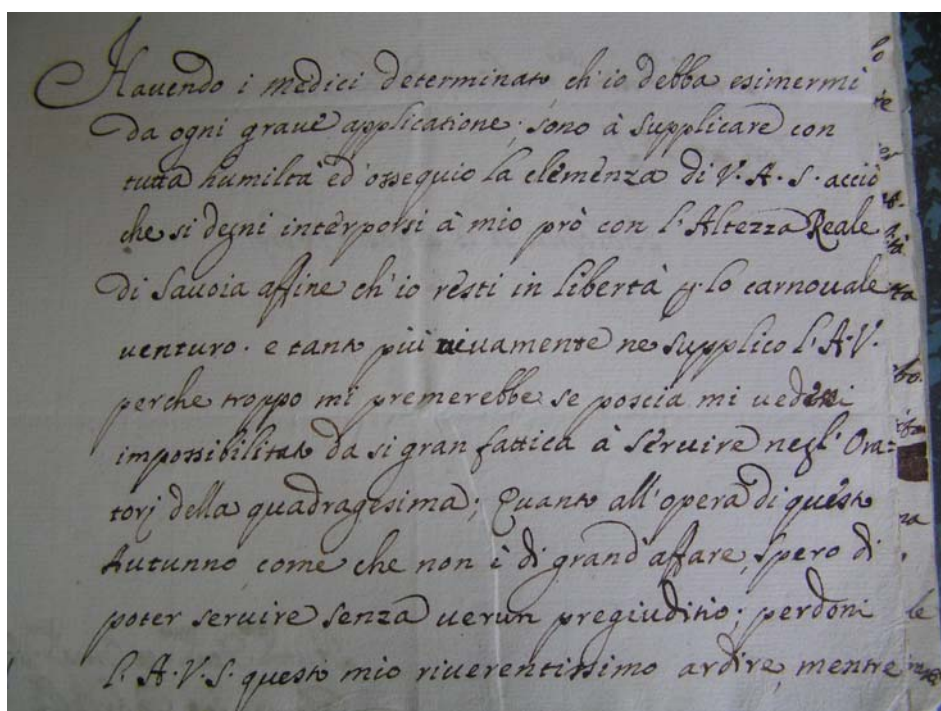 Hauendo i medici determinato ch'io debba esimermi
da ogni graue applicatione; sono à supplicare con
tutta humiltà ed ossequio la clemenza di V. A. S. acciò
che si degni interporsi à mio prò con l'Altezza Reale
di Sauoia affine ch'io resti in libertà p. lo carnouale
uenturo. e tanto più uiuamente ne supplico l'A. V.
perche troppo mi premerebbe se poscia mi uedessi
impossibilitato da si gran fattica à seruire negl'Ora=
torj della quadragesima; Quanto all'opera di questo
Autunno come che non è di grand'affare, spero di
poter seruire senza uerun pregiuditio; perdoni
l'A. V. S. questo mio riuerentissimo ardire, mentre